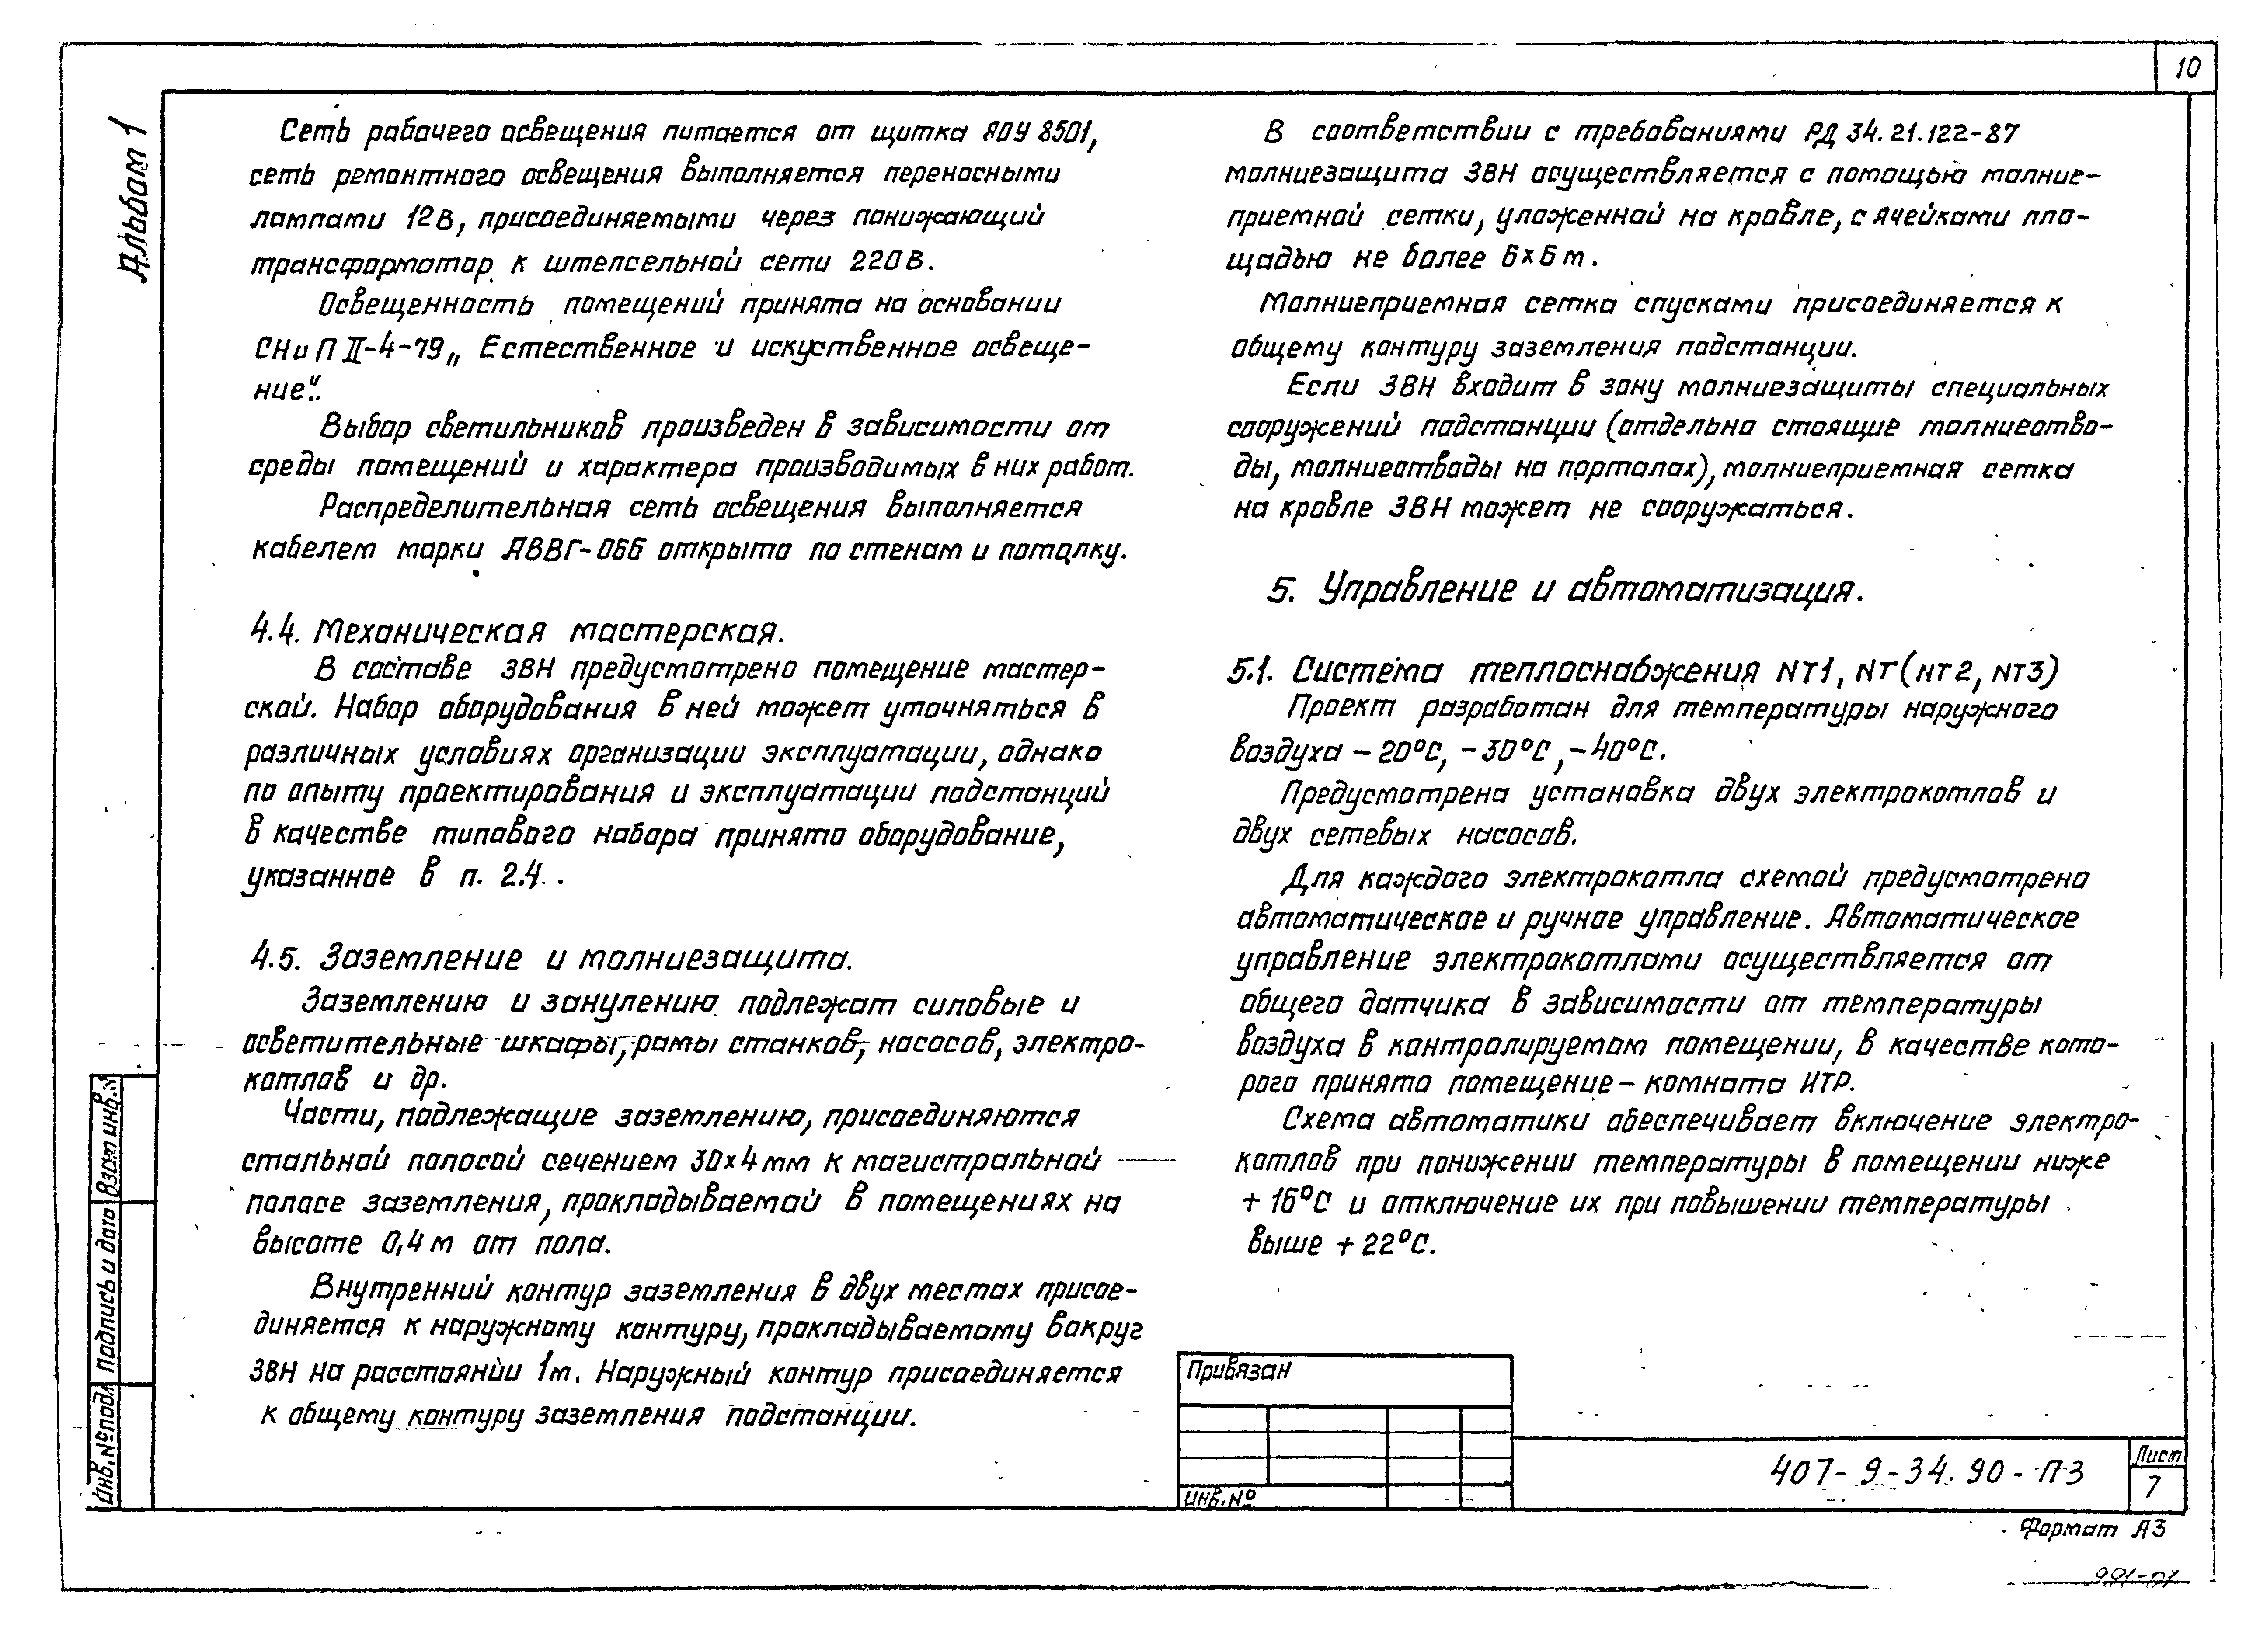 10
Альбом 1
Сеть рабочего освещения питается от щитка ЯОУ 8501,
сеть ремонтного освещения выполняется переносными
лампами 12В, присоединяемыми через понижающий
трансформатор к штепсельной сети 220В.
Освещенность помещений принята на основании
СНиП II-4-79 „Естественное и искуственное освеще-
ние“.
Выбор светильников произведен в зависимости от
среды помещений и характера производимых в них работ.
Распределительная сеть освещения выполняется
кабелем марки АВВГ-066 открыто по стенам и потолку.
4.4. Механическая мастерская.
В составе ЗВН предусмотрено помещение мастер-
ской. Набор оборудования в ней может уточняться в
различных условиях организации эксплуатации, однако
по опыту проектирования и эксплуатации подстанций
в качестве типового набора принято оборудование,
указанное в п. 2.4.
4.5. Заземление и молниезащита.
Заземлению и занулению подлежат силовые и
осветительные шкафы, рамы станков, насосов, электро-
котлов и др.
Части, подлежащие заземлению, присоединяются
стальной полосой сечением 30×4мм к магистральной
полосе заземления, прокладываемой в помещениях на
высоте 0,4м от пола.
Внутренний контур заземления в двух местах присое-
диняется к наружному контуру, прокладываемому вокруг
ЗВН на расстоянии 1м. Наружный контур присоединяется
к общему контуру заземления подстанции.
В соответствии с требованиями РД 34.21.122-87
молниезащита ЗВН осуществляется с помощью молние-
приемной сетки, уложенной на кровле, с ячейками пло-
щадью не более 6×6м.
Молниеприемная сетка спусками присоединяется к
общему контуру заземления подстанции.
Если ЗВН входит в зону молниезащиты специальных
сооружений подстанции (отдельно стоящие молниеотво-
ды, молниеотводы на порталах), молниеприемная сетка
на кровле ЗВН может не сооружаться.
5. Управление и автоматизация.
5.1. Система теплоснабжения NT1, NT(NT2, NT3)
Проект разработан для температуры наружного
воздуха -20°С, -30°С, -40°С.
Предусмотрена установка двух электрокотлов и
двух сетевых насосов.
Для каждого электрокотла схемой предусмотрено
автоматическое и ручное управление. Автоматическое
управление электрокотлами осуществляется от
общего датчика в зависимости от температуры
воздуха в контролируемом помещении, в качестве кото-
рого принято помещение - комната ИТР.
Схема автоматики обеспечивает включение электро-
котлов при понижении температуры в помещении ниже
+16°С и отключение их при повышении температуры
выше +22°С.
Взам инв.N
Подпись и дата
Инв.№подл
Привязан
инв.№
407-9-34.90-ПЗ
Лист
7
Формат А3